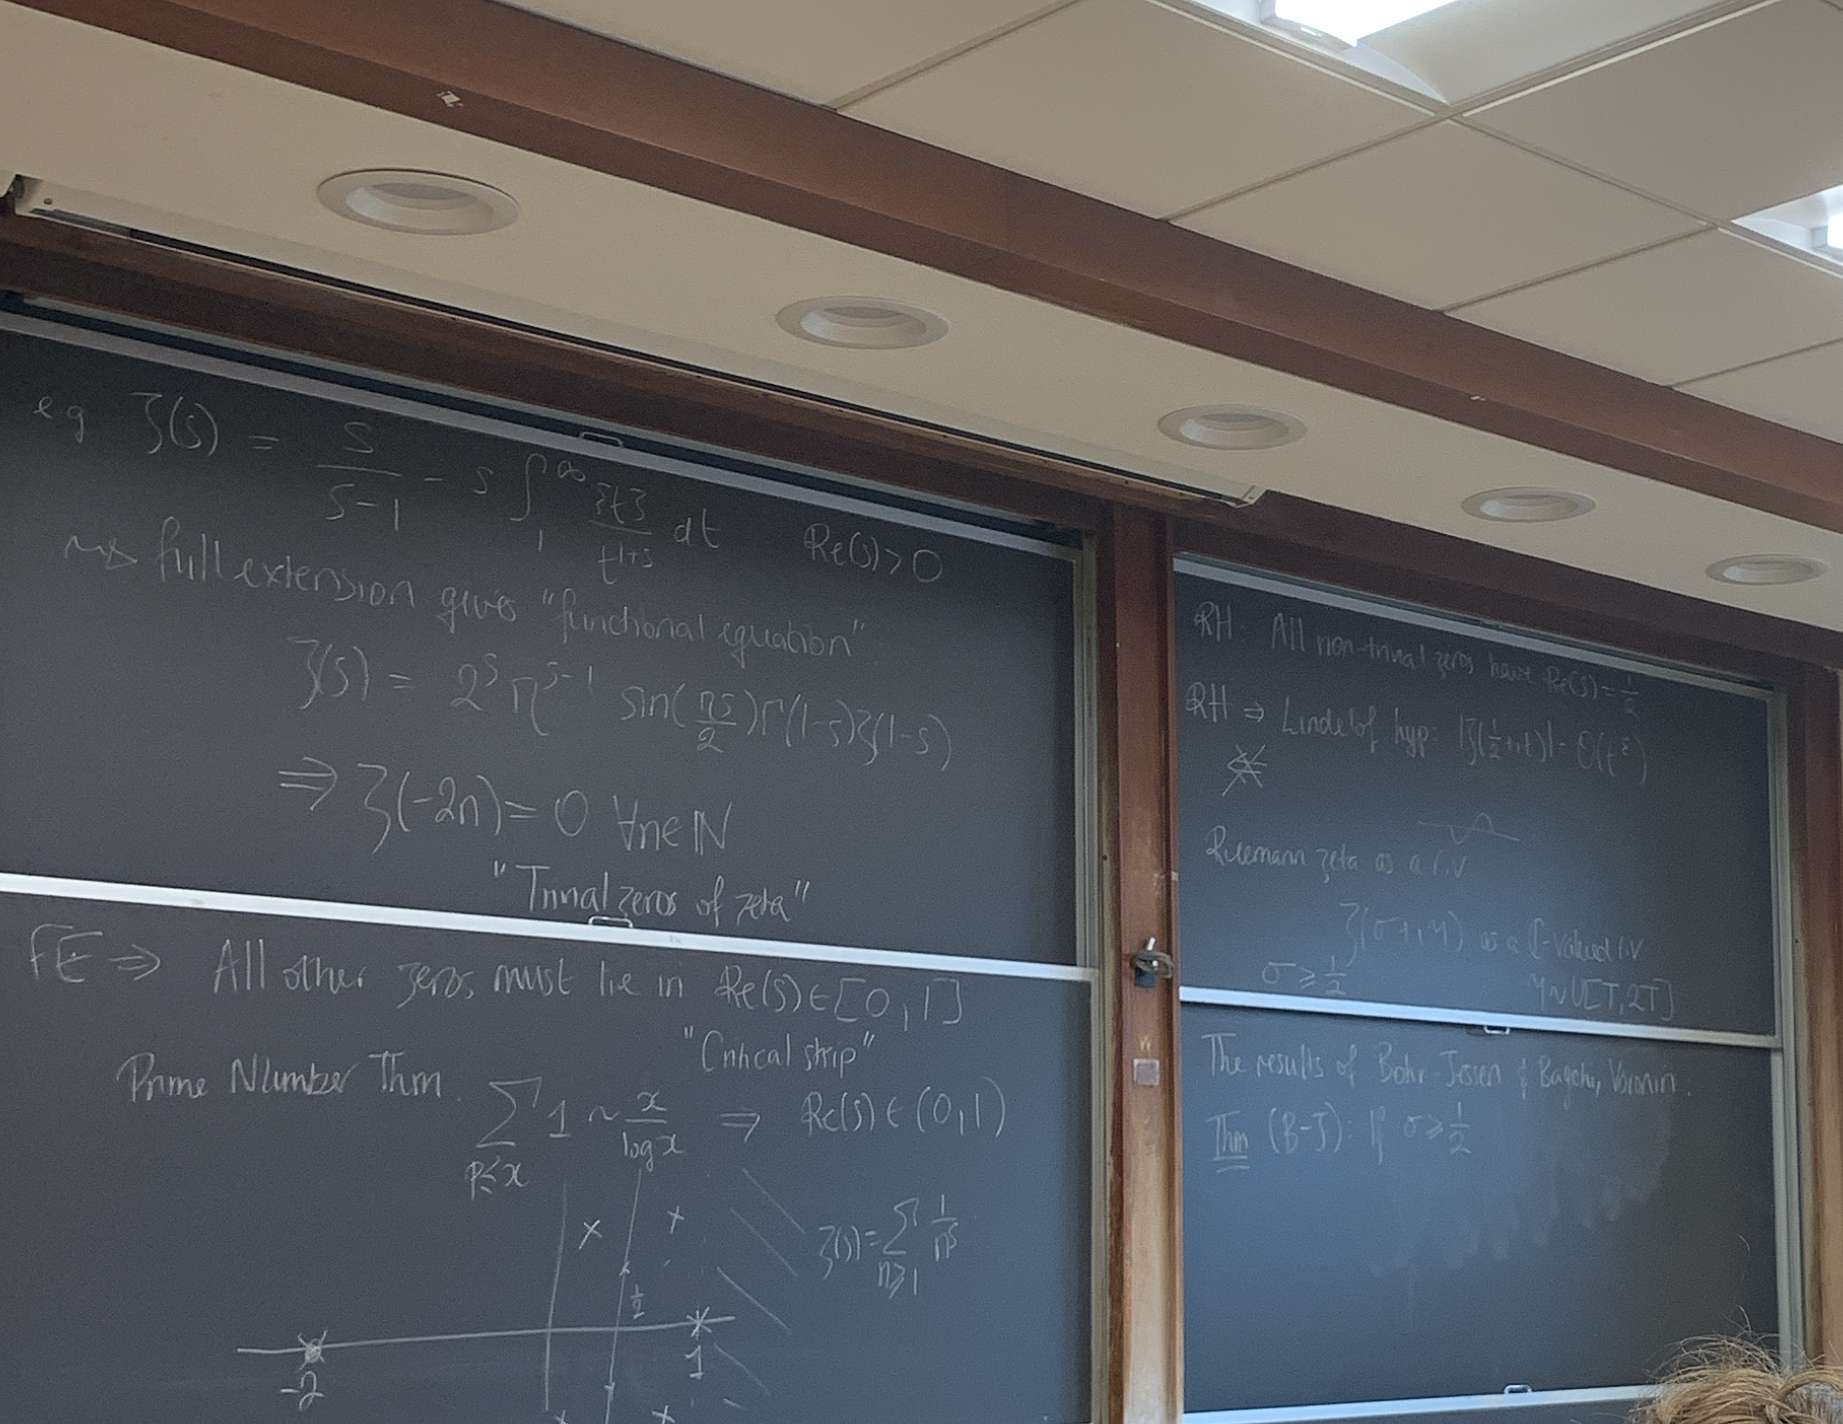 eg ζ(s) = s/(s-1) - s ∫_1^∞ {t}/t^{1+s} dt Re(s)>0
⇝ full extension gives "functional equation"
ζ(s) = 2^s π^{s-1} sin(πs/2) Γ(1-s) ζ(1-s)
⇒ ζ(-2n) = 0 ∀n∈ℕ
"Trivial zeros of zeta"
FE ⇒ All other zeros must lie in Re(s) ∈ [0,1]
"Critical strip"
Prime Number Thm. ∑_{p≤x} 1 ~ x/log x ⇒ Re(s) ∈ (0,1)
ζ(s) = ∑_{n≥1} 1/n^s
1/2
-2
1
RH All non-trivial zeros have Re(s) = 1/2
RH ⇒ Lindelof hyp: |ζ(1/2+it)| = O(t^ε)
Riemann zeta as a r.v
ζ(σ+iη) as a ℂ-valued r.v
σ ≥ 1/2 η~U[T,2T]
The results of Bohr-Jessen & Bagchi, Voronin.
Thm (B-J): If σ > 1/2